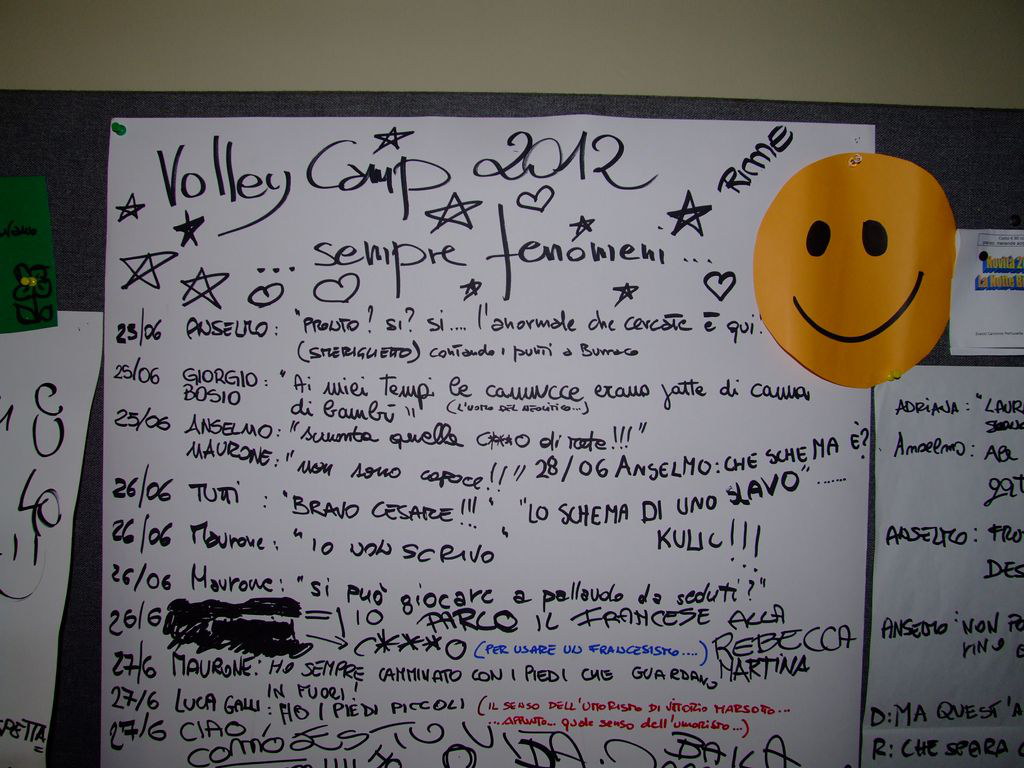 Volley Camp 2012
RIME
... sempre fenomeni ...
25/06 ANSELMO: "PRONTO? SI? SI.... l'anormale che cercate è qui!
(SMERIGLIETTO) contando i punti a Burraco
25/06 GIORGIO BOSIO: "Ai miei tempi le camincce erano fatte di canna
di bambù" (L'UOMO DEL NEOLITICO...)
25/06 ANSELMO: "smonta quella C***O di rete!!!"
MAURONE: "non sono capace!!"
28/06 ANSELMO: CHE SCHEMA È?
26/06 TUTTI: "BRAVO CESARE!!!"
"LO SCHEMA DI UNO SLAVO" ......
KULIC!!!
26/06 Maurone: "IO NON SCRIVO"
26/06 Maurone: "si può giocare a pallavolo da seduti?"
26/6 IO PARLO IL FRANCESE ALLA
C***O (PER USARE UN FRANCESISMO....) REBECCA
MARTINA
27/6 MAURONE: HO SEMPRE CAMMINATO CON I PIEDI CHE GUARDANO
IN FUORI!
27/6 LUCA GALLI: HO I PIEDI PICCOLI (IL SENSO DELL'UMORISMO DI VITTORIO MARSOTTO...
... APPUNTO... quale senso dell'umorismo...)
27/6 CIAO,
COMO ES TU VIDA?
Novità 2
La Notte B
ADRIANA: "LAUR
Anselmo:
ANSELMO: FRO
DES
ANSELMO: "NON PO
D: MA QUEST'A
R: CHE SPARA C